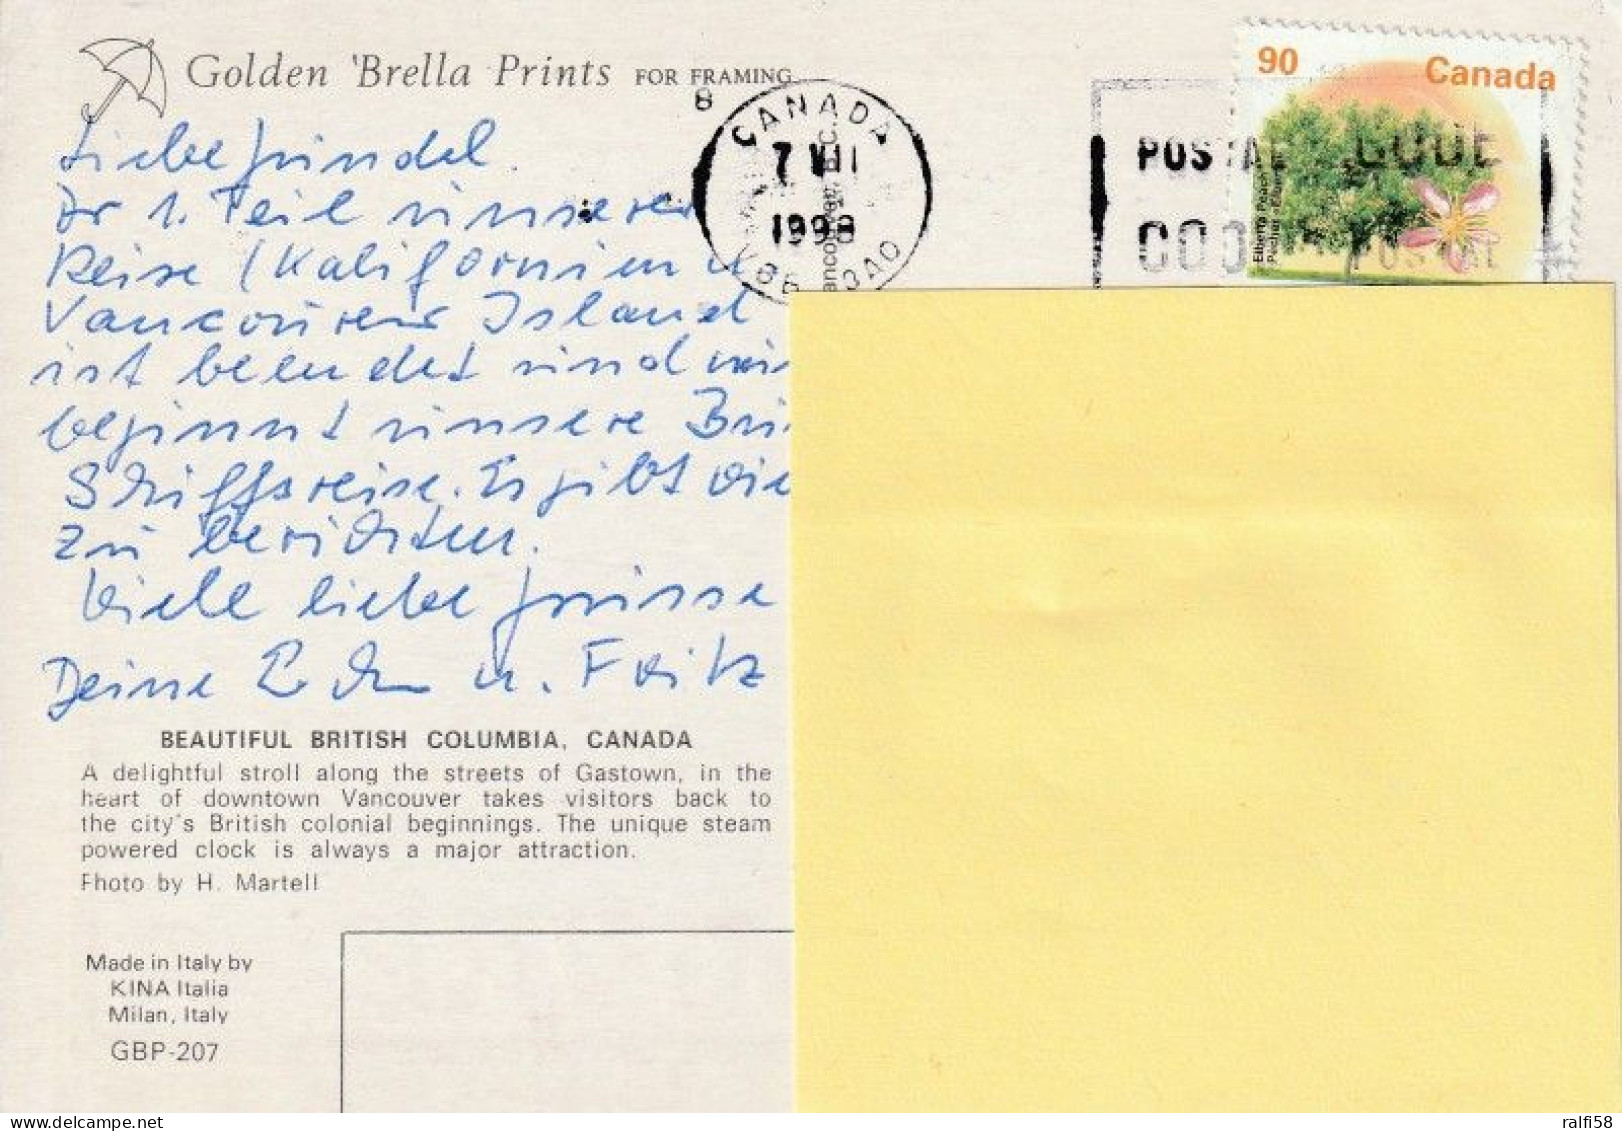 Golden 'Brella Prints FOR FRAMING
8
CANADA
7 VII
1998
V6B 3A0
Vancouver, B.C.
90 Canada
POSTAL CODE
CODE POSTAL
Elberta Peach
Liebe
Dr 1. Teil unserer
Reise (Kalifornien u
Vancouver Island
ist beendet und
beginnt unsere
Schiffsreise. Es gibt vie
zu berichten.
Viele liebe Grüsse
Deine u. Fritz
BEAUTIFUL BRITISH COLUMBIA, CANADA
A delightful stroll along the streets of Gastown, in the
heart of downtown Vancouver takes visitors back to
the city's British colonial beginnings. The unique steam
powered clock is always a major attraction.
Photo by H. Martell
Made in Italy by
KINA Italia
Milan, Italy
GBP-207
ralfi58